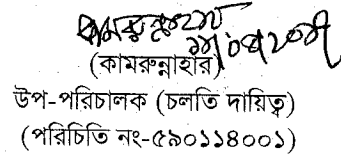 কামরুন্নাহার
(কামরুন্নাহার)
উপ-পরিচালক (চলতি দায়িত্ব)
(পরিচিতি নং-৫৯০১১৪০০১)